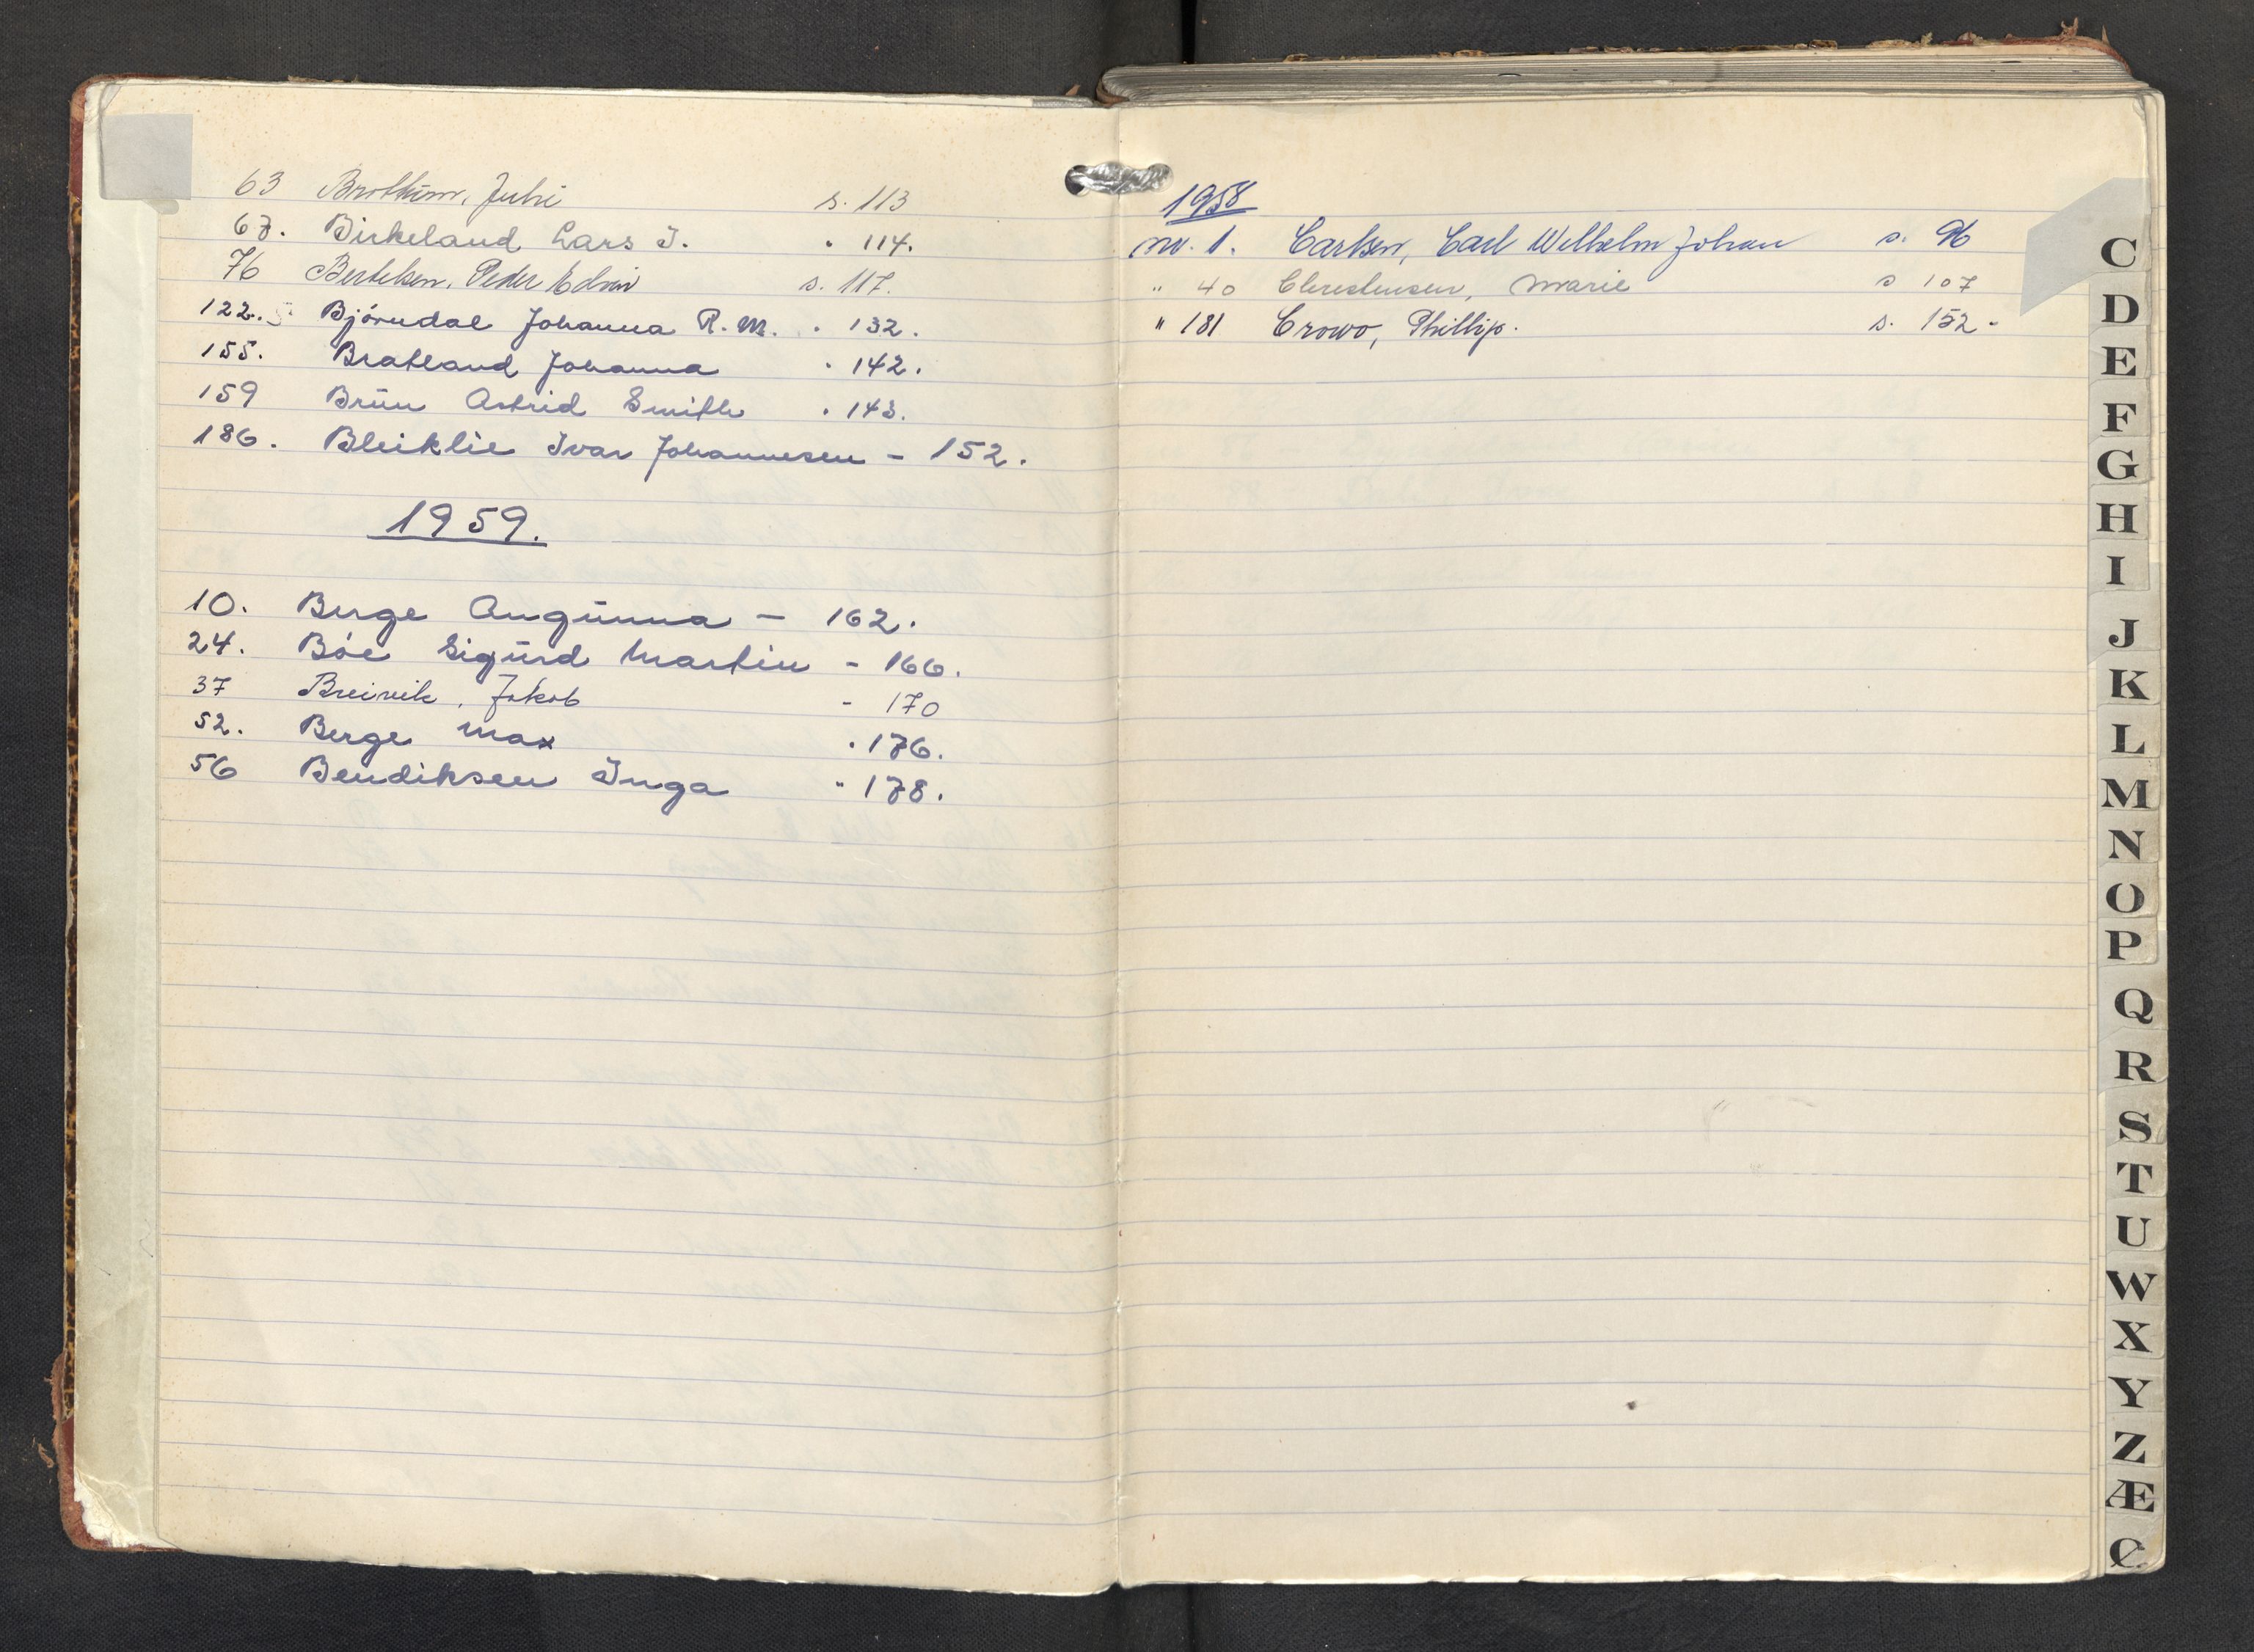 63 Brothûm, Juhi s. 113
67. Birkeland Lars J. " 114.
76 Bertelsen, Peder Edvin s. 117.
122. Björndal Johanna R. M. " 132.
155. Bratland Johanna " 142.
159 Brün Astrid Smith " 143.
186. Bleiklie Ivar Johannesen - 152.
1959.
10. Berge Augunna - 162.
24. Böe Sigurd Martin - 166.
37 Breivik, Jakob - 170
52. Berge Max " 176.
56 Bendiksen Inga " 178.
1958
nr. 1. Carlsen, Carl Wilhelm Johan s. 96
" 40 Christensen, Marie s 107
" 181 Crowo, Phillip. s. 152-
C
D
E
F
G
H
I
J
K
L
M
N
O
P
Q
R
S
T
U
W
X
Y
Z
Æ
Ø